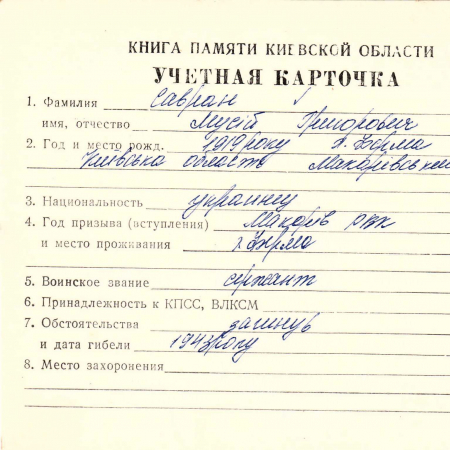 КНИГА ПАМЯТИ КИЕВСКОЙ ОБЛАСТИ
УЧЕТНАЯ КАРТОЧКА
1. Фамилия Савран
имя, отчество Мусій Григорович
2. Год и место рожд. 1919 року
Київська область Макарівський
3. Национальность українец
4. Год призыва (вступления) Макарів РВК
и место проживания
5. Воинское звание сержант
6. Принадлежность к КПСС, ВЛКСМ
7. Обстоятельства загинув
и дата гибели 1943 року
8. Место захоронения